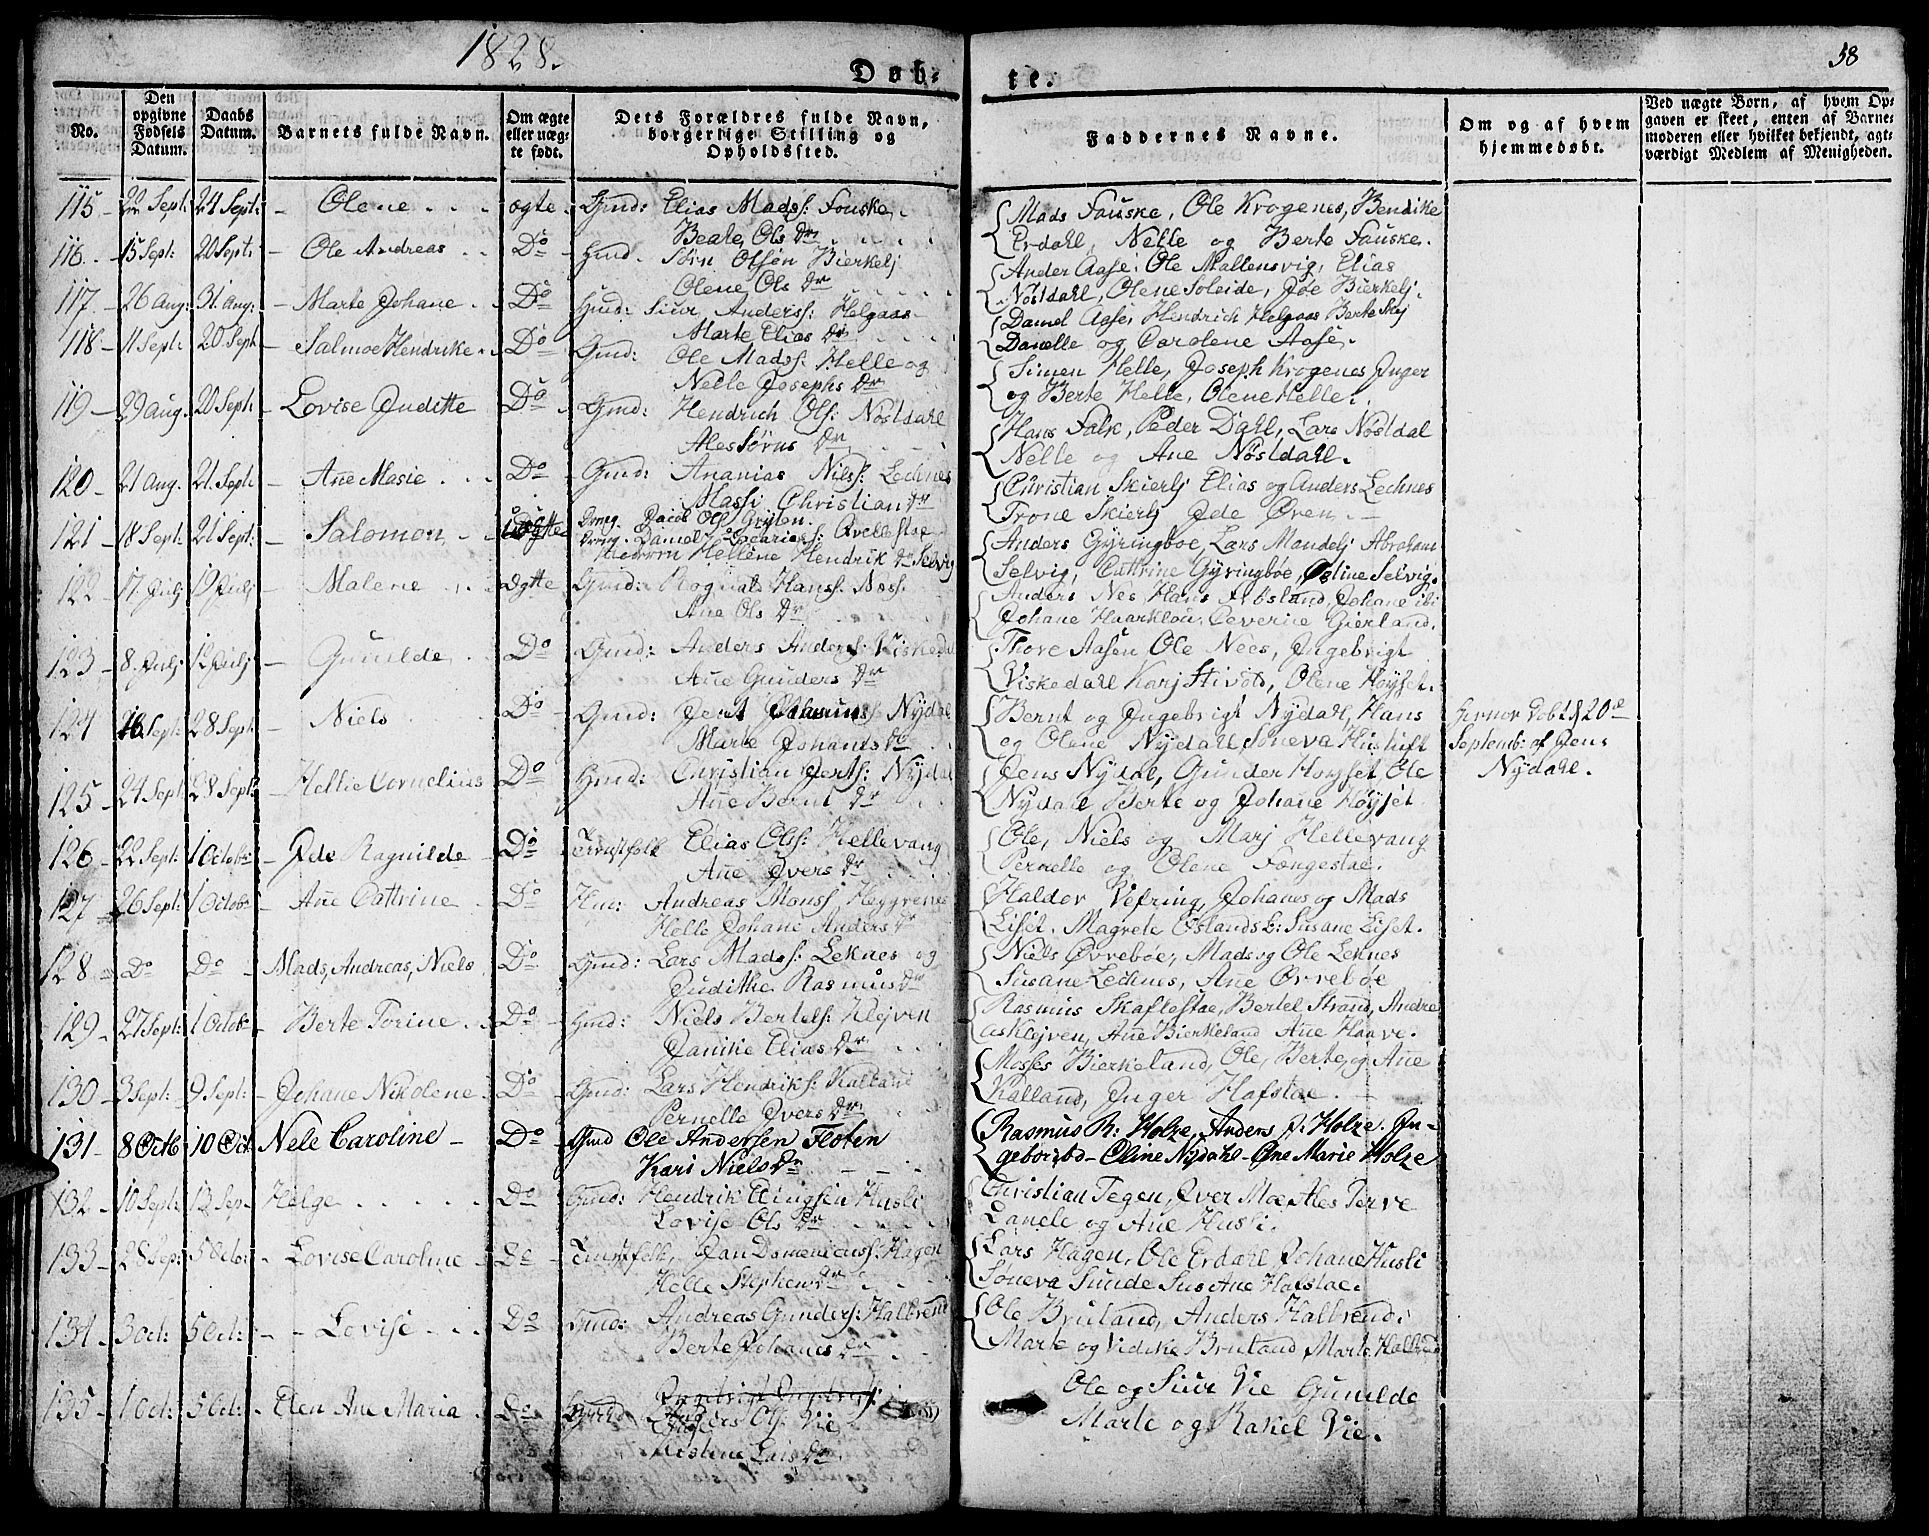 1828.
58
Døb-
te.
No.
Den opgivne Fødsels Datum.
Daabs Datum.
Barnets fulde Navn.
Om ægte eller uægte født.
Dets Forældres fulde Navn, borgerlige Stilling og Opholdssted.
Faddernes Navne.
Om og af hvem hjemmedøbt.
Ved uægte Børn, af hvem Opgaven er skeet, enten af Barnemoderen eller hvilket bekjendt, agtværdigt Medlem af Menigheden.
115 - 22 Sept: 24 Sept: - Olene . . . ægte - Gmd: Elias Madss: Fouske
Beate Ols Dr
Mads Fauske, Ole Krogenes, Bendike
Erdahl, Nelle og Berte Fauske.
116. - 15 Sept: 20 Sept: - Ole Andreas . . Do - Hmd. Sørn Olsøn Bierkelj
Olene Ols Dr
Ander Aase, Ole Mallensvig, Elias
Nøstdahl, Olene Soleide, Joe Bierkelj.
117. - 26 Aug: 31. Aug: - Marte Johane . . Do Hmd: Siur Anderss: Helgaas
Marte Elias Dr
Daniel Aase, Hendrich Helgaas Berte Skej
Danelle og Carolene Aase.
118 - 11 Sept: 20 Sept - Salmoe Hendrikke . . Do Gmd: Ole Madss: Helle og
Nelle Josephs Dr
Simen Helle, Joseph Krogenes Inger
og Berte Helle, Olene Helle.
119 - 29 Aug. 20 Sept: - Lovise Juditte Do . Gmd: Hendrich Ols: Nøstdahl
Ales Sørns Dr
Hans Falk, Peder Dahl, Lars Nøstdal
Nelle og Ane Nøstdahl.
120 - 21 Aug. 21. Sept: - Añe Masie . . . Do - Gmd: Ananias Nilss: Lechnes
Massi Christian Dr
Christian Skierlj Elias og Anders Lechnes
Trone Skierlj Ide Øren.
121 - 18 Sept: 21 Sept: - Salomon . . uægte Drng. Jacob Ols: Gryten.
Drng. Daniel Zacarias: Qvellestae
Hellene Hendrik Dr Selvig
Anders Gyringboe, Lars Mandelj Abraham
Selvig, Cathrine Gyringbøe, Oline Selvig.
122 - 17. Julj 19 Julj - Malene . . . Ægtte Gmd: Rognald Hanss: Næss.
Ane Ols Dr
Anders Nes Hans Johane ibi
Johane Haarklou, Ceverine Gierland.
123 - 8. Julj 12 Julj - Gunilde . . Do - Gmd: Anders Anderss: Viskedal
Añe Gunders Dr
Thore Aasen Ole Nees, Ingebrigt
Viskedahl Karj Stivots, Olene Høyset.
124 - 18. Sept: 28 Sept: - Niels Do - Gmd: Jens Nydal
Marte Johanes Dr
Bernt og Ingebrigt Nydahl, Hans
og Olene Nydahl Søneva Hustuft
Hernor Døbt d 20de
Septemb: af Jens
Nydahl.
125 - 24 Sept: 28 Sept: - Hellie Cornelius Do - Hmd: Christian Jerts: Nydal
Añe Bernt Dr
Jens Nydal, Gunder Høyset, Ole
Nydahl Berte og Johane Høyset.
126 - 22 Sept: 1 Octobr - Ide Ragnilde . Do - Tienistfolk Elias Ols: Hellevang
Añe Ivers Dr
Ole, Niels og Marj Hellevang
Pernelle og Olene Fængestae.
127 - 26 Sept: 1 Octobr - Añe Cathrine . Do - Hmd: Andreas Monss Heggrenes
Helle Johane Anders Dr
Haldor Vefring, Johanes og Mads
Liset. Magrete Øslandsb: Susane Liset.
128 - Do Do - Mads, Andreas, Niels Do - Gmd: Lars Madss: Leknes og
Judithe Rasmus Dr
Niels Øvrebøe, Mads og Ole Leknes
Susane Lechnes, Ane Ørrebøe
129 - 27 Sept: 1 Octobr - Berte Torine . . Do - Hmd: Niels Bertels: Klejven
Janike Elias Dr
Rasmus Skaflestae, Bertel Strand, Andre
as Klejven, Añe Bierkeland Añe Haave.
130 - 3 Sept: - 9 Sept: - Johane Nikolene . Do - Gmd: Lars Hendriks: Kalland
Pernelle Ivers Dr
Mosses Bierkeland, Ole, Berte, og Añe
Kalland, Inger Hafstae.
131 - 8 Octb 10 Oct Nele Caroline - Do - Gmd Ole Andersen Floten
Kari Niels Dr
Rasmus R: Holze, Anders J: Holze. In-
Oline Nydahl - Ane Marie Holze
132 - 10 Sept: 13 Sep - Helge . . . . Do Gmd: Hendrik Elingsen Husli
Lovise Ols Dr
Christian Tegen, Iver Moe Ales Terve
Lanele og Ane Husli.
133 - 28 Sep: 5 Octo: - Lovise Caroline - Do - Tienistfolk, Jan Domenicuss: Hagen
Helle Stephens Dr
Lars Hagen, Ole Erdahl Johane Husli
Søneva Sunde Susane Hafstae.
134 - 3 Oct: 5 Oct: - - Lovise . . . Do - Gmd: Andreas Gunders: Halbrend
Berte Johanes Dr
Ole Bruland, Anders Halbrend:
Marte og Vidike Bruland Marte Halbrend
135 - 1 Oct: 5 Oct: - Elen Ane Maria . Do - Anders Ols: Vie
Lars Dr
Ole og Siur Vie Gunilde
Marte og Rakel Vie.